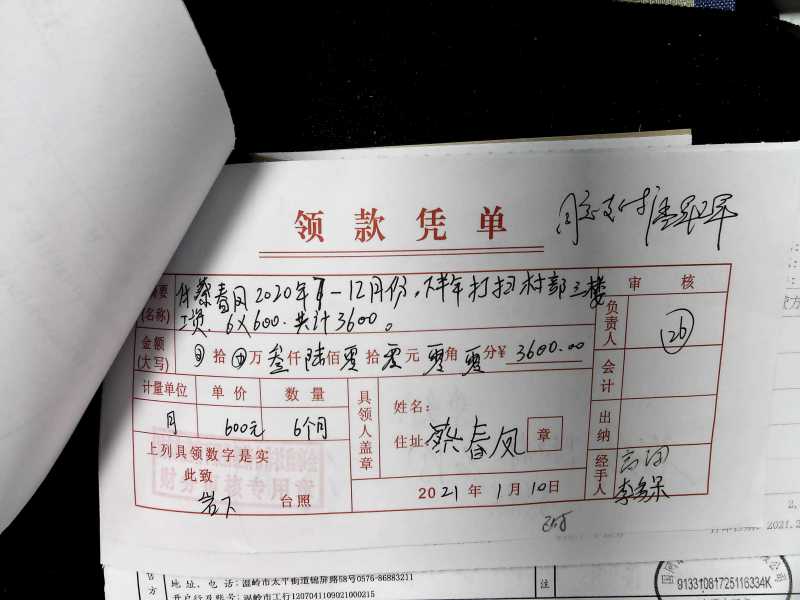 领款凭单
同意支付
摘要
(名称)
付蔡春凤2020年7-12月份,半年打扫村部三楼
工资. 6×600. 共计3600。
审核
负责人
(26)
金额
(大写)
拾 万叁仟陆佰零拾零元零角零分¥3600.00
会计
计量单位 单价 数量
月 600元 6个月
具领人盖章
姓名:
住址: 蔡春凤 章
出纳
上列具领数字是实
此致
岩下 台照
财务审核专用章
2021年1月10日
经手人
方
地址、电话:温岭市太平街道锦屏路58号0576-86883211
开户行及账号:温岭市工行1207041109021000215
注
91331081725116334K
2021.2